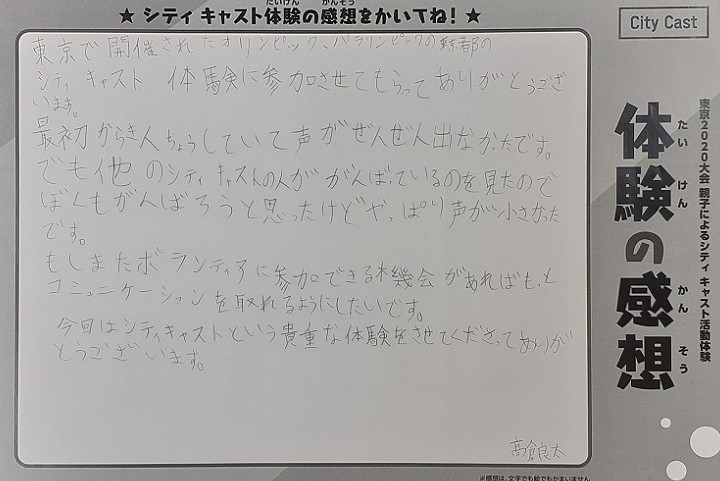 ★ シティ キャスト体験の感想をかいてね! ★
たいけん かんそう
東京で開催されたオリンピック、パラリンピックの東京都の
シティ キャスト 体験に参加させてもらってありがとうござ
います。
最初からきんちょうしていて声がぜんぜん出なかったです。
でも他のシティキャストの人ががんばっているのを見たので
ぼくもがんばろうと思ったけどやっぱり声が小さかった
です。
もしまたボランティアに参加できる機会があればもっと
コミュニケーションを取れるようにしたいです。
今回はシティキャストという貴重な体験をさせてくださってありが
とうございます。
高倉良太
※感想は、文字でも絵でもかまいません。
City Cast
東京2020大会 親子によるシティ キャスト活動体験
体験の感想
たい けん かん そう